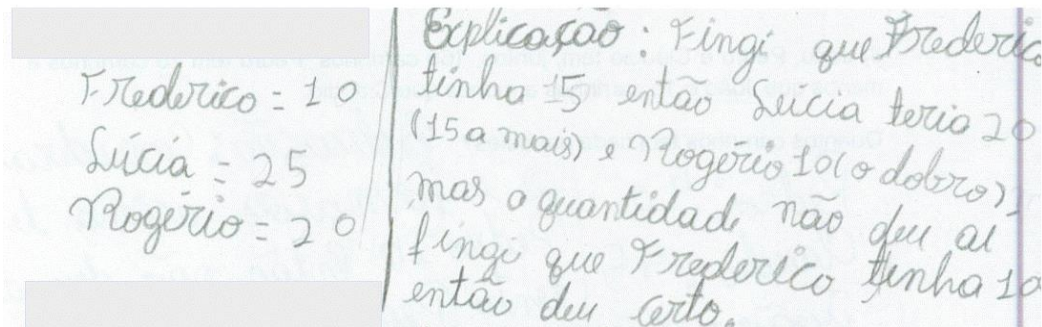 Frederico = 10
Lúcia = 25
Rogério = 20
Explicação: Fingi que Frederic
tinha 15 então Lúcia teria 20
(15 a mais) e Rogério 10 (o dobro),
mas a quantidad, não deu aí
fingi que Frederico tinha 10
então deu certo.